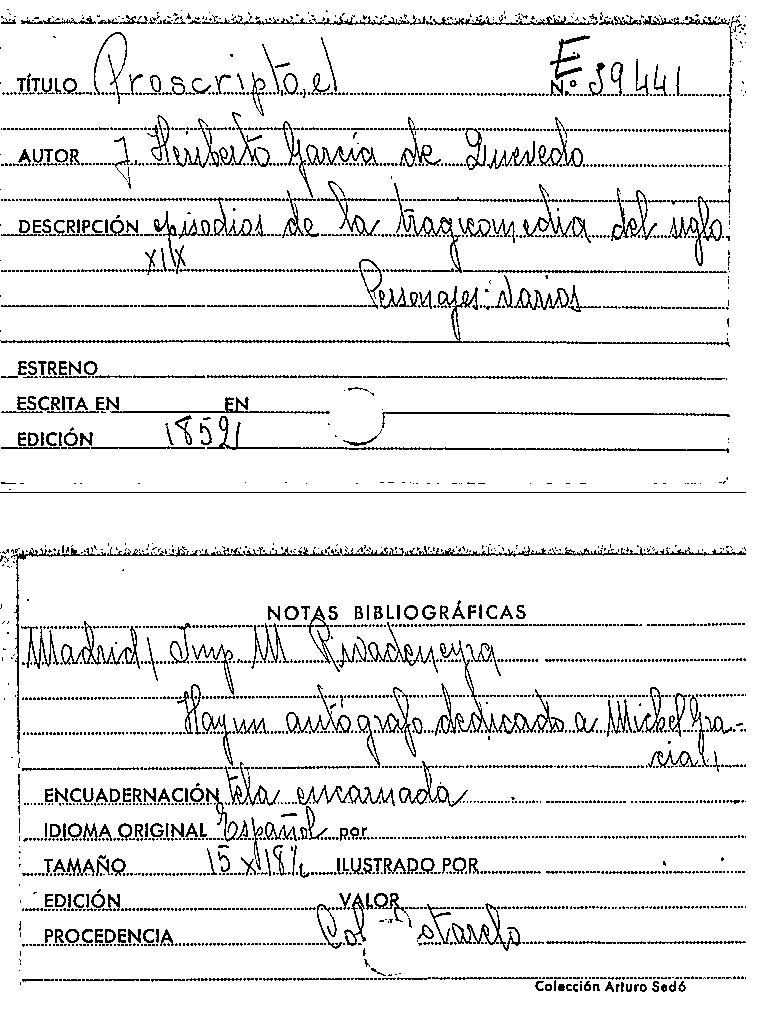 E
TÍTULO Proscripto, el N.º 39441
AUTOR J. Heriberto García de Quevedo
DESCRIPCIÓN episodios de la tragicomedia del siglo
XIX
Personajes: Varios
ESTRENO
ESCRITA EN EN
EDICIÓN 1852
NOTAS BIBLIOGRÁFICAS
Madrid, Imp M Rivadeneyra
Hay un autógrafo dedicado a Michel Gra-
cial,
ENCUADERNACIÓN tela encarnada
IDIOMA ORIGINAL Español por
TAMAÑO 15 x 18½ ILUSTRADO POR
EDICIÓN VALOR
PROCEDENCIA Col Cotarelo
Colección Arturo Sedó